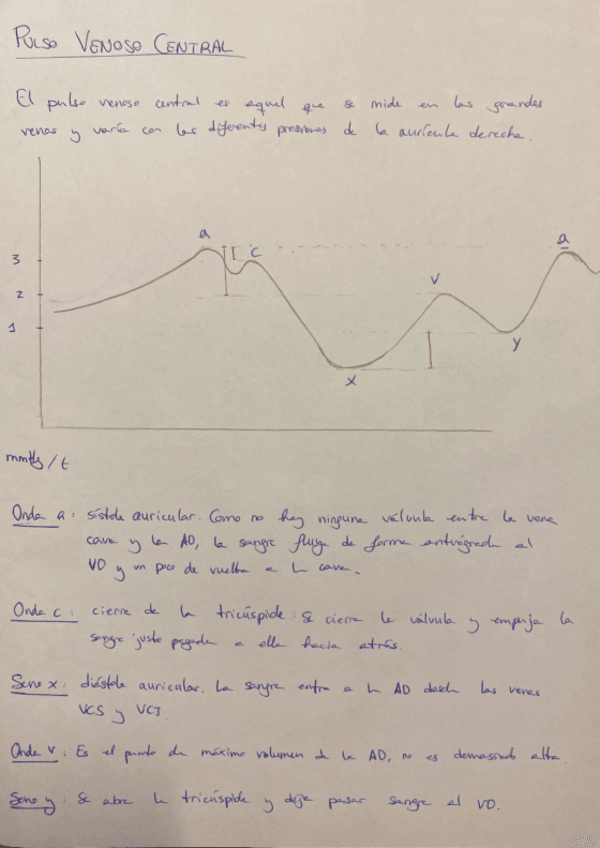 PULSO VENOSO CENTRAL
El pulso venoso central es aquel que se mide en las grandes
venas y varía con las diferentes presiones de la aurícula derecha.
a
a
3
c
2
v
1
y
x
mmHg / t
Onda a: sístole auricular. Como no hay ninguna válvula entre la vena
cava y la AD, la sangre fluye de forma anterógrada al
VD y un poco de vuelta a la cava.
Onda c: cierre de la tricúspide: se cierra la válvula y empuja la
sangre justo pegada a ella hacia atrás.
Seno x: diástole auricular. La sangre entra a la AD desde las venas
VCS y VCI.
Onda v: Es el punto de máximo volumen de la AD, no es demasiado alta.
Seno y: Se abre la tricúspide y deja pasar sangre al VD.